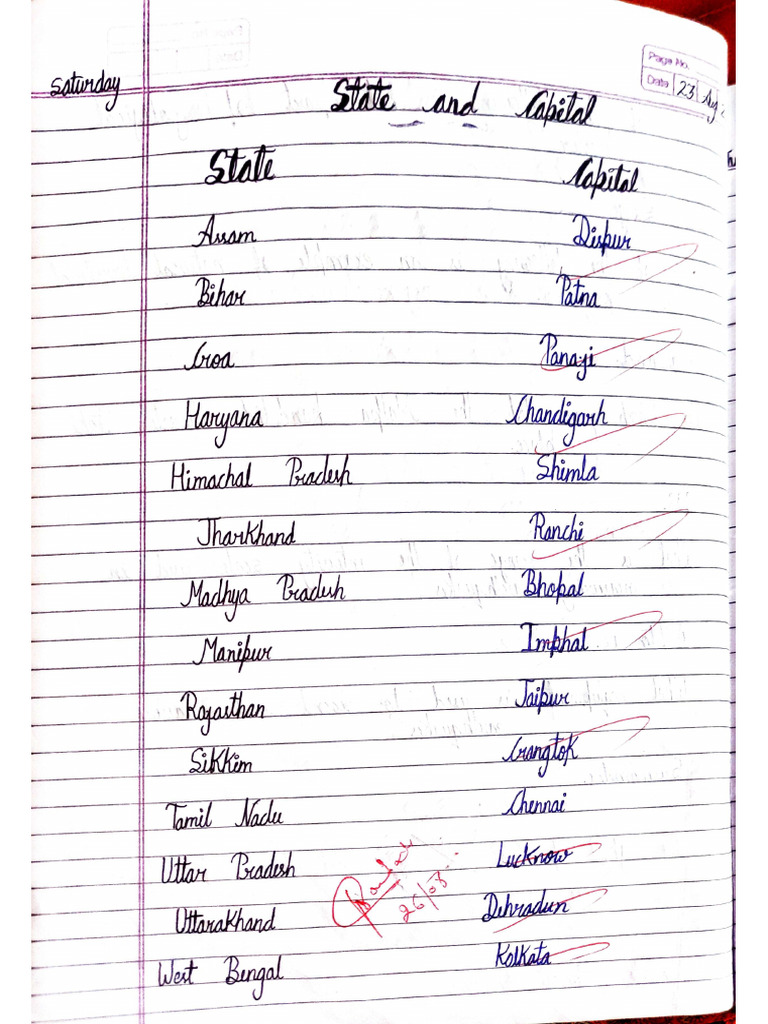 Page No.
Saturday
Date 23 Aug
State and Capital
State Capital
Assam Dispur
Bihar Patna
Goa Panaji
Haryana Chandigarh
Himachal Pradesh Shimla
Jharkhand Ranchi
Madhya Pradesh Bhopal
Manipur Imphal
Rajasthan Jaipur
Sikkim Gangtok
Tamil Nadu Chennai
Uttar Pradesh Lucknow
Uttarakhand Dehradun
26/08
West Bengal Kolkata